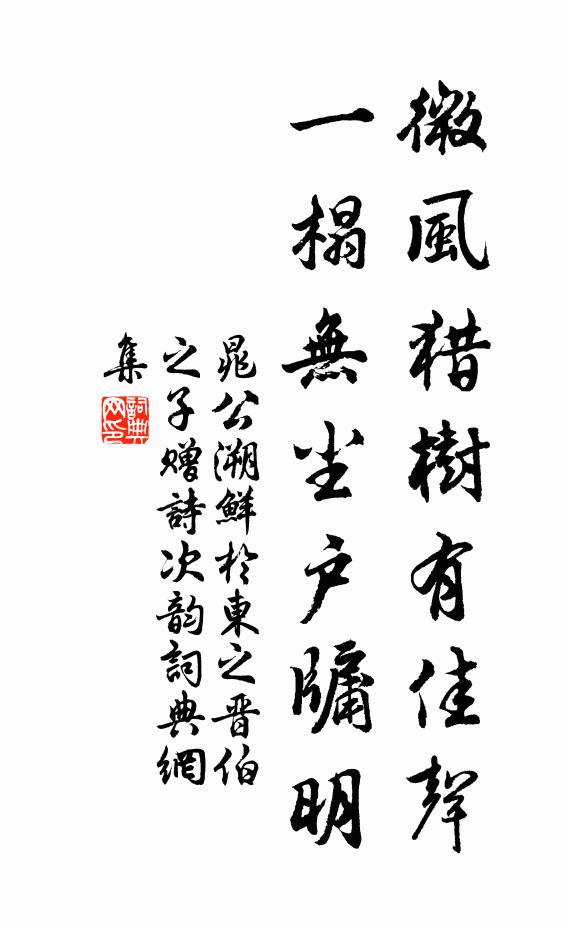 微風猎樹有佳聲
一榻無尘戶牖明
晁公溯鮮於東之晋伯
之子贈詩次韵詞典網
集
詞典
网印